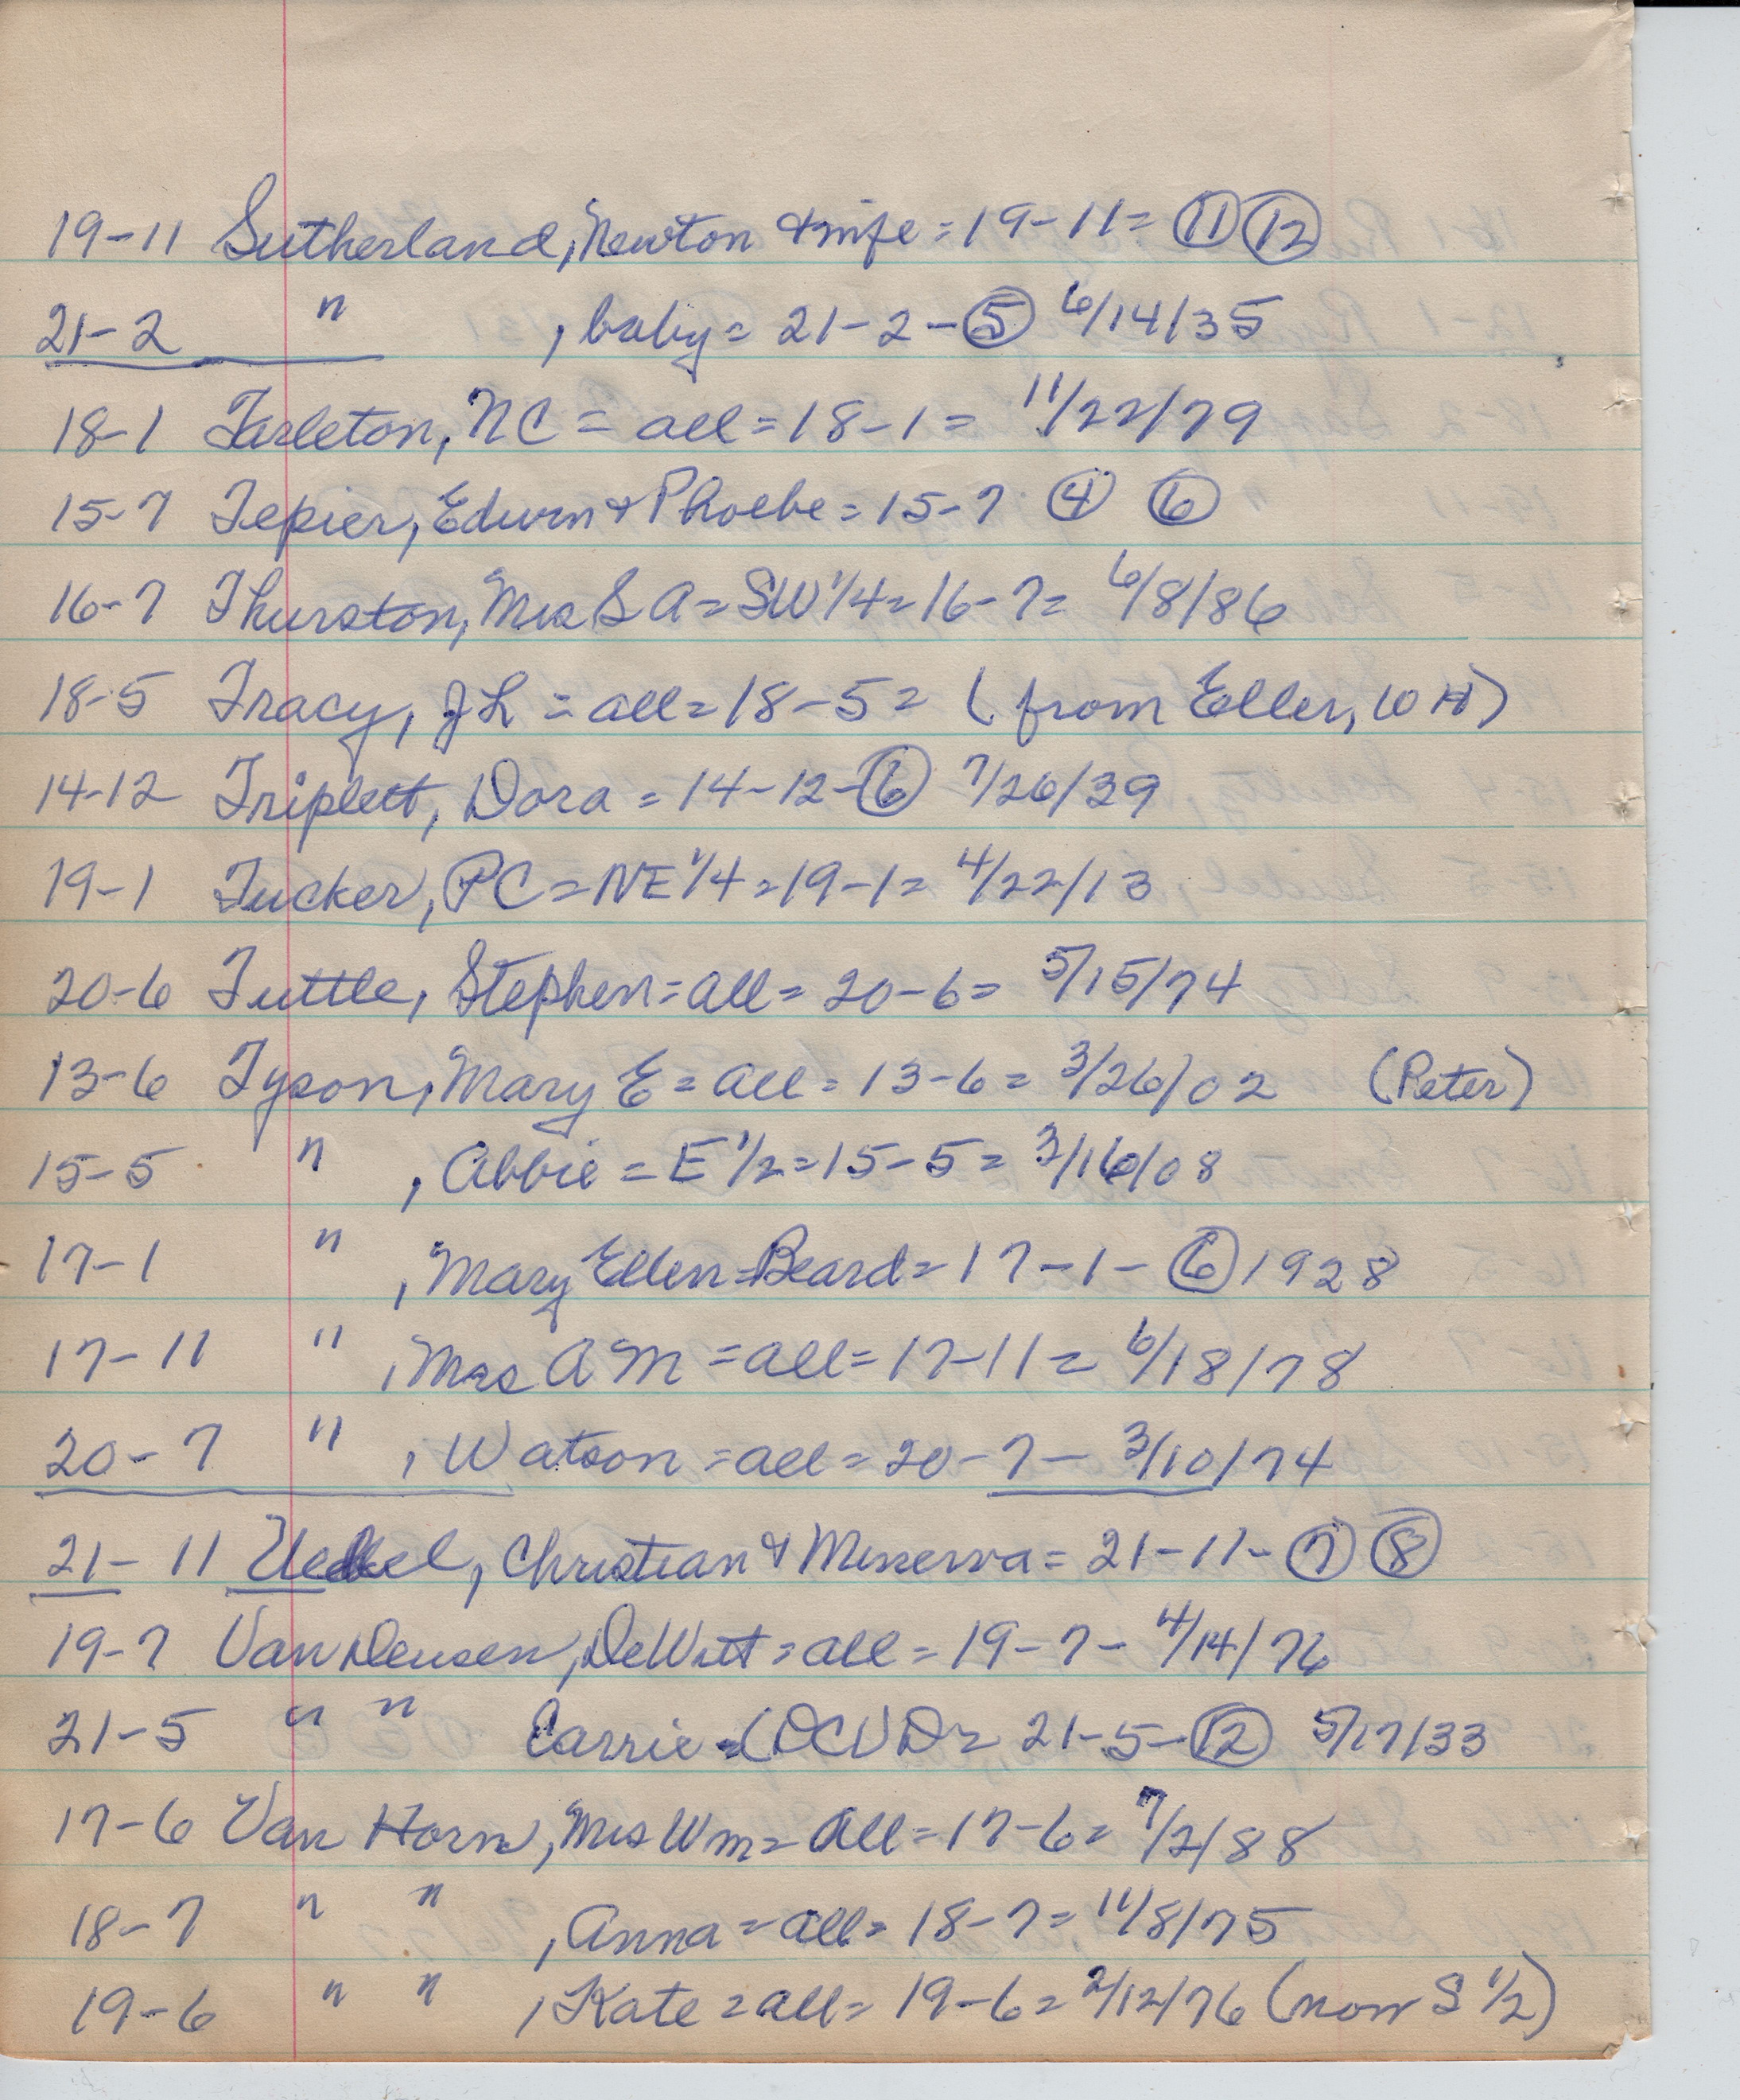 19-11 Sutherland, Newton & wife = 19-11= ⑪ ⑫
21-2 " , baby = 21-2-⑤ 6/14/35
18-1 Tarleton, NC = all = 18-1 = 11/22/79
15-7 Tepier, Edwin & Phoebe = 15-7 ④ ⑥
16-7 Thurston, Mrs S A = SW 1/4 = 16-7 = 6/8/86
18-5 Tracy, J L = all = 18-5 = (from Eller, W H)
14-12 Triplett, Dora = 14-12-⑥ 7/26/39
19-1 Tucker, PC = NE 1/4 = 19-1 = 4/22/13
20-6 Tuttle, Stephen = all = 20-6 = 5/15/74
13-6 Tyson, Mary E = all = 13-6 = 3/26/02 (Peter)
15-5 " , Abbie = E 1/2 = 15-5 = 3/16/08
17-1 " , Mary Ellen = Beard = 17-1-⑥ 1928
17-11 " , Mrs A M = all = 17-11 = 6/18/78
20-7 " , Watson = all = 20-7- 3/10/74
21-11 , Christian & Minerva = 21-11-⑦ ⑧
19-7 Van Deusen, DeWitt = all = 19-7- 4/14/76
21-5 " " Carrie = (DCVD = 21-5-⑫ 5/17/33
17-6 Van Horn, Mrs Wm = all = 17-6 = 7/2/88
18-7 " " , Anna = all = 18-7 = 11/8/75
19-6 " " , Kate = all = 19-6 = 2/12/76 (now S 1/2)